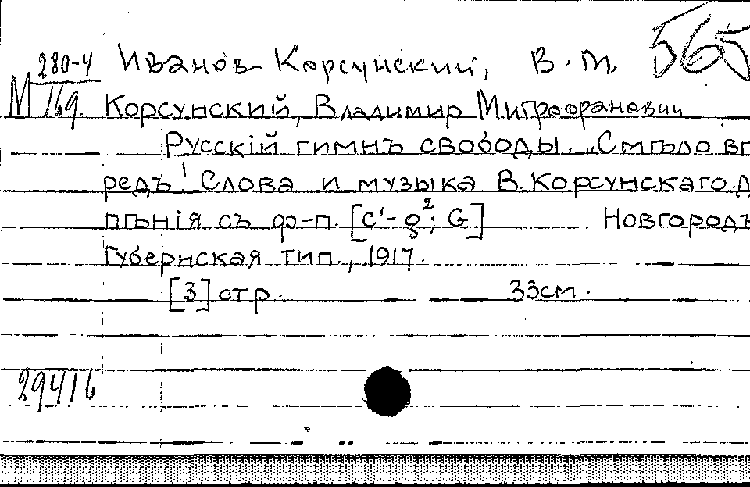 280-4 Иванов-Корсунский, В.М. 565
М 169. Корсунский, Владимир Митрофанович
Русскій гимнъ свободы. „Смѣло вп
редъ! Слова и музыка В. Корсунскаго Д
пѣнія съ ф-п. [c¹-g²; G] Новгородъ
Губернская тип., 1917.
[3] стр. 33см.
29416